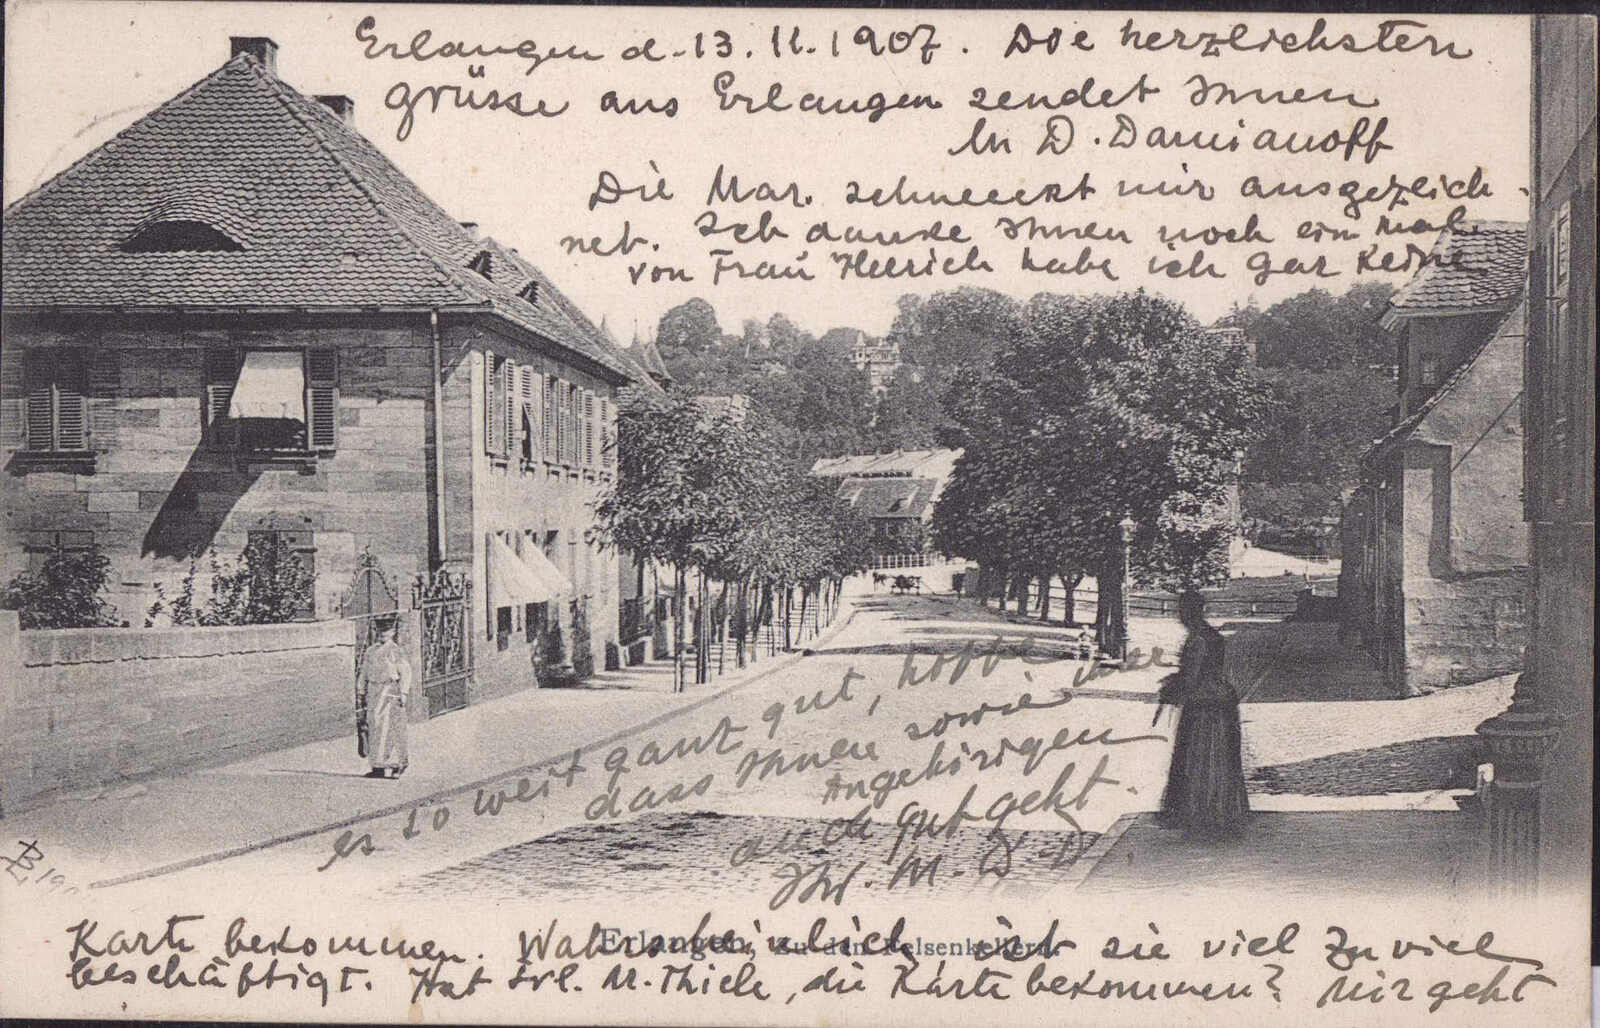 Erlangen d. 13. 11. 1907. Die herzlichsten
grüsse aus Erlangen sendet Ihnen
D. Damianoff
Die Mar. schmeckt mir ausgezeich-
net. Ich danke Ihnen noch ein mal.
von Frau habe ich gar keine
Karte bekommen. Wahrscheinlich, ist sie viel zu viel
beschäftigt. Hat Frl. M. Thiele, die Karte bekommen? Mir geht
es so weit ganz gut, hoffe
dass Ihnen sowie ihre
Angehörigen
auch gut geht.
Ihr. M. D. D
Erlangen, Zu den Felsenkellern.